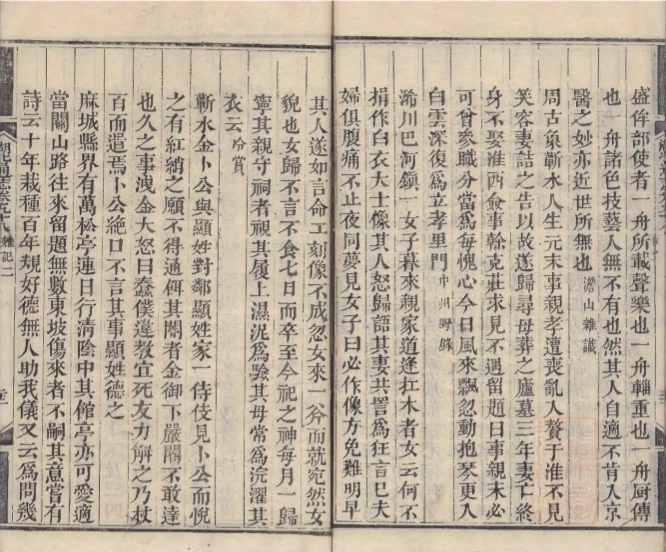 盛侔部使者一舟所載聲樂也一舟輜重也一舟厨傳
也一舟諸色技藝人無不有也然其人自適不肯入京
醫之妙亦近世所無也 澹山雜識
周古象蘄水人生元末事親孝遭喪亂入贅于淮不見
笑容妻詰之告以故遂歸尋母葬之廬墓三年妻亡終
身不娶淮西僉事翰克莊求見不遇留題曰事親未必
可曾參職分當爲每愧心今日風來飄忽動抱琴更入
白雲深復爲立孝里門 中州野錄
浠川巴河鎭一女子暮來親家道逢扛木者女云何不
捐作白衣大士像其人怒歸語其妻共詈爲狂言巳夫
婦俱腹痛不止夜同夢見女子曰必作像方免難明早
其人遂如言命工刻像不成忽女來一斧而就宛然女
貌也女歸不言不食七日而卒至今祀之神每月一歸
寧其親守祠者視其履上濕泥爲驗其母常爲浣濯其
衣云 吟賞
蘄水金卜公與顯姓對鄰顯姓家一侍伎見卜公而悅
之有紅綃之願不得通俾其閽者金御下嚴閽不敢達
也久之事洩金大怒曰蠢僕違教宜死友力解之乃杖
百而遣焉卜公絶口不言其事顯姓德之
麻城縣界有萬松亭連日行清陰中其館亭亦可愛適
當關山路往來留題無數東坡傷來者不嗣其意嘗有
詩云十年栽種百年規好德無人助我儀又云爲問幾
雜記二